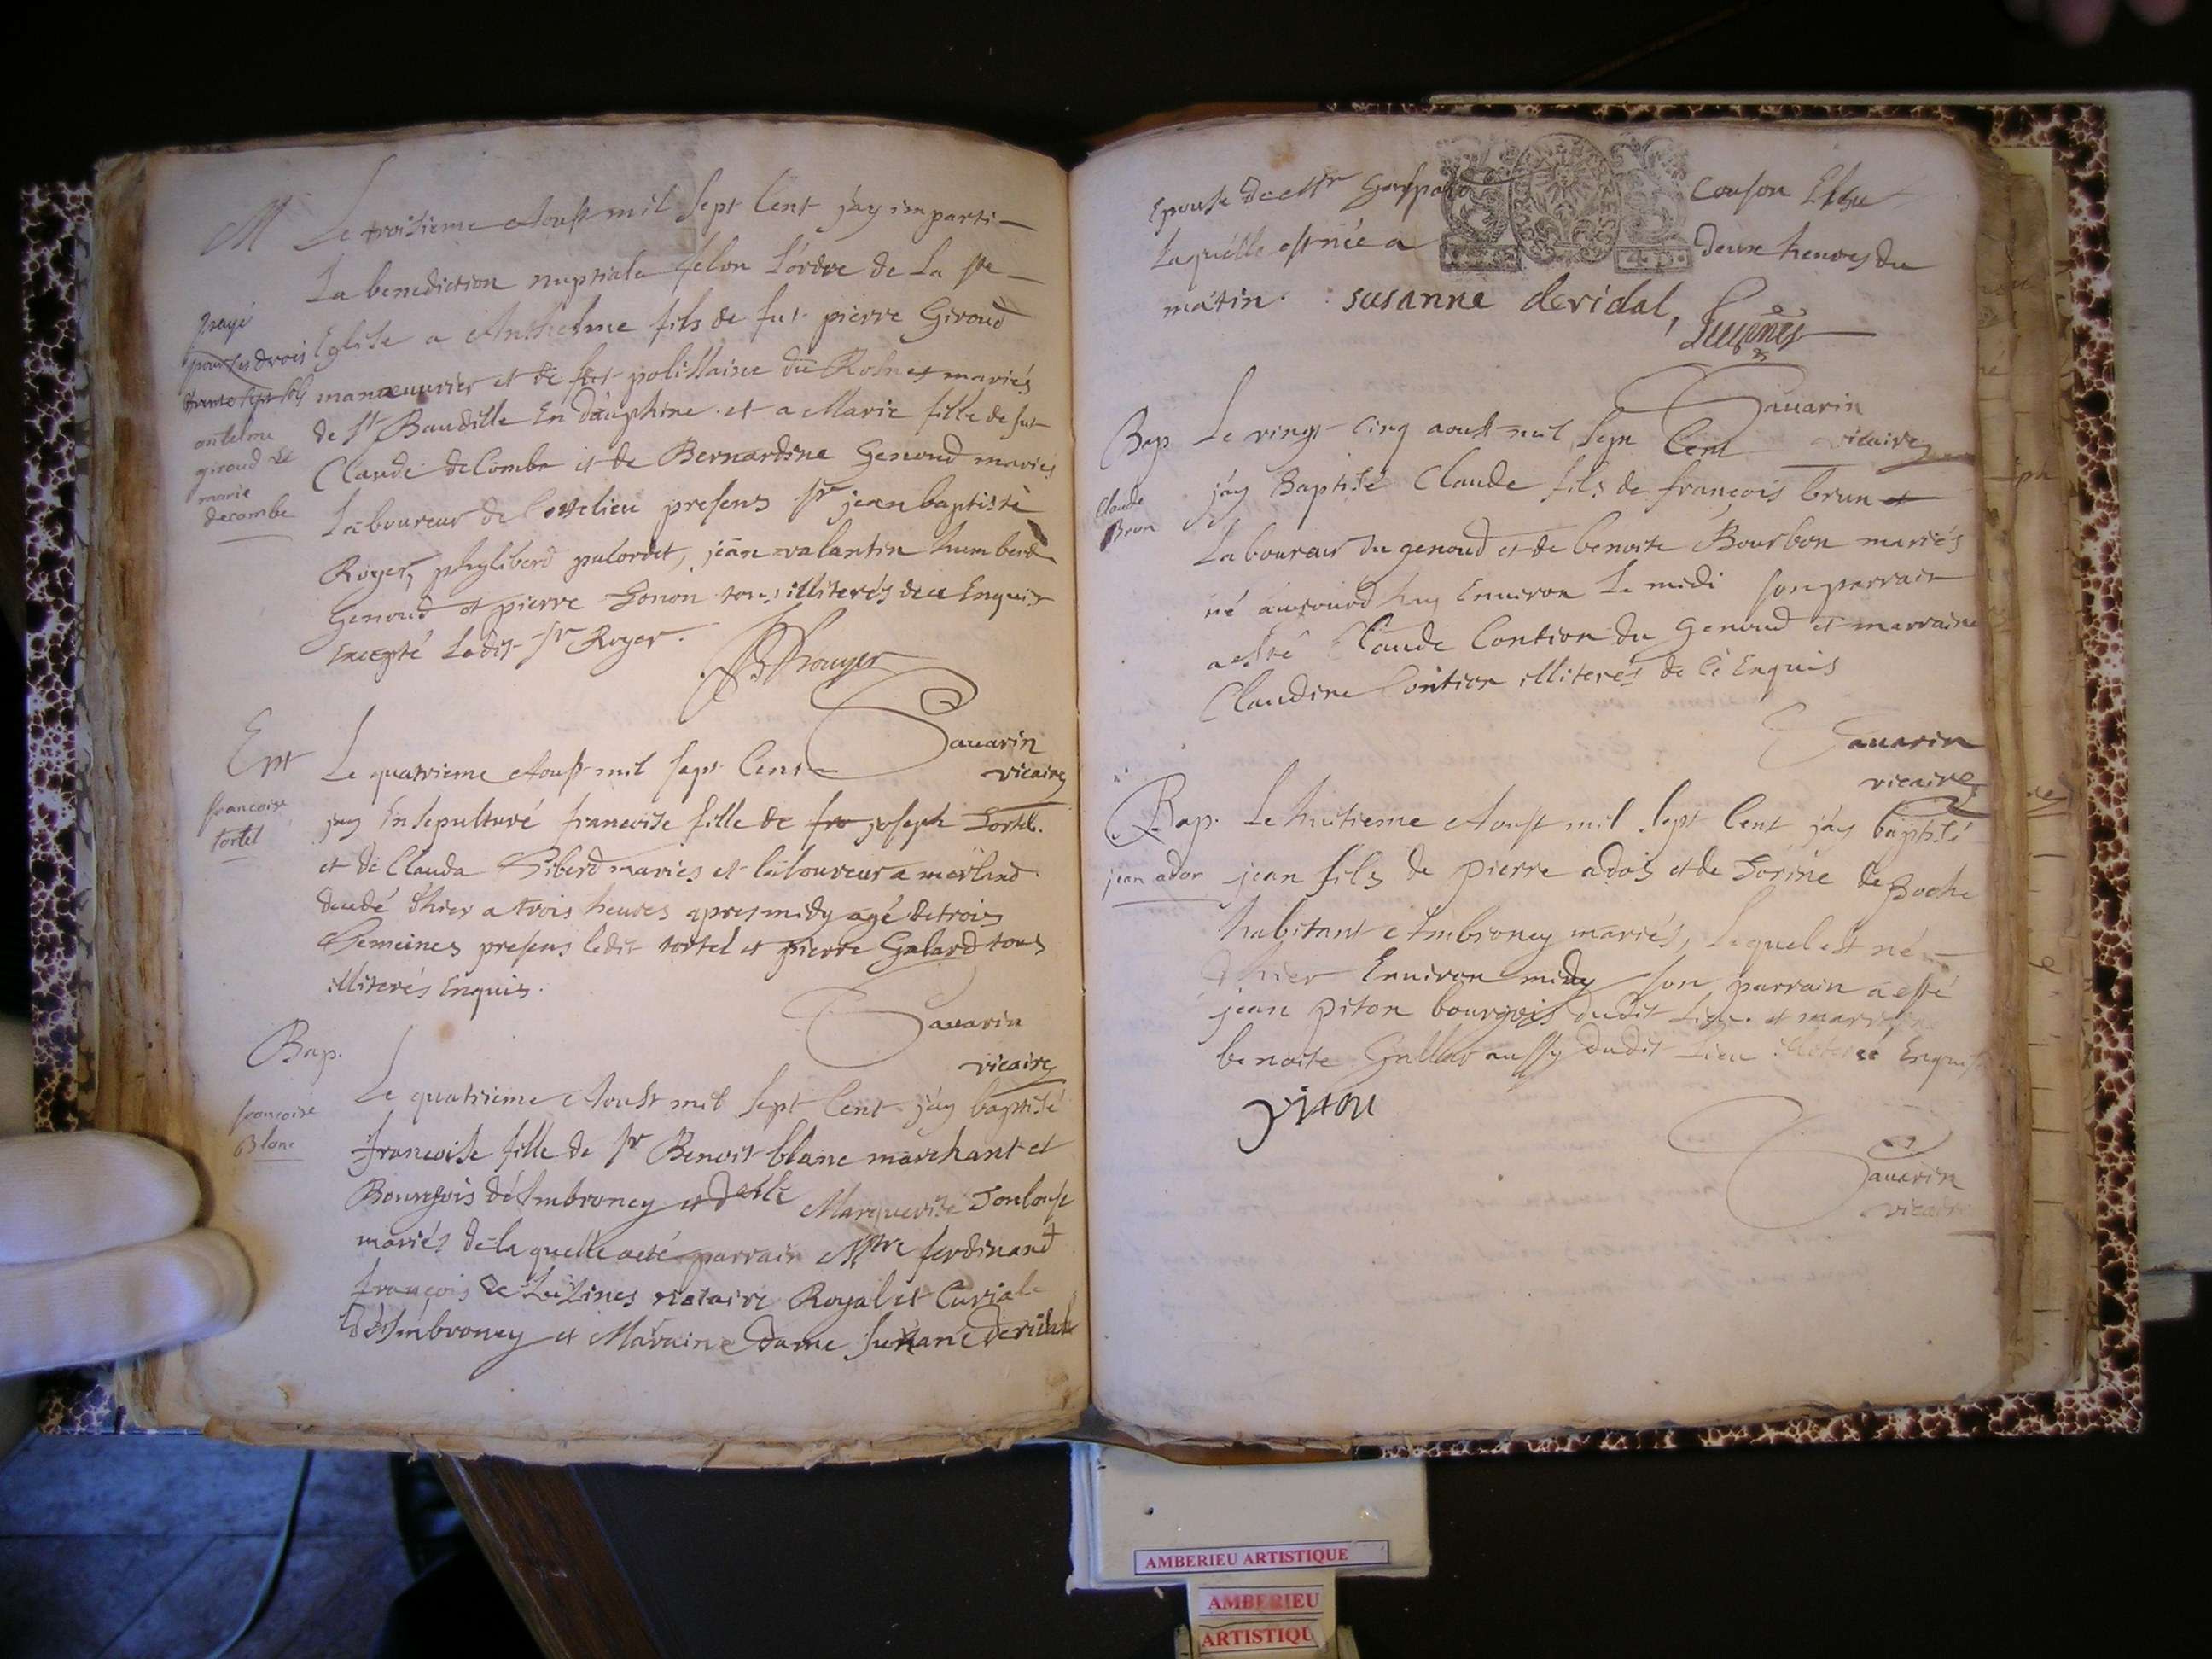 M Le troisieme Aoust mil sept Cent j'ay imparti
La benediction nuptiale selon L'ordre de La ste
Eglise a Anthelme fils de fut pierre Giroud
manœuurier et de mariés
de St Baudille En dauphine et a Marie fille de fut
Claude deCombe et de Bernardine Genoud mariés
Laboureur de presens sr jean baptiste
Royer, phyliberd palordet, jean valantin humberd
Genoud et pierre tous illiterés de ce Enquis
Excepté Ledit sr Royer.
payé
pour ses drois
antelme
giroud et
marie
decombe
Rouyer
Sauarin
vicaire
Ent Le quatrieme Aoust mil sept Cent
francoise
tortel
jay Ensepulturé francoise fille de fro joseph Tortel
et de Clauda Siberd mariés et laboureur a
d'hier a trois heures apres midy agé de trois
Semeines presens ledit tortel et pierre Galard tous
illiterés Enquis.
Sauarin
vicaire
Bap.
francoise
Blanc
Le quatrieme Aoust mil sept Cent j'ay baptisé
francoise fille de sr Benoit blanc marchant et
Bourgois d'Ambroney et delle Marguerite Toulouse
mariés de laquelle aeté parrain Mtre ferdinand
francois de notaire Royal et Curiale
d'Ambroney et Maraine dame Susane deridal
Epouse de Mr Gaspard Couson
Laquelle est née a deux heures du
matin. susanne deridal,
Sauarin
vicaire
Bap Le vingt cinq aoust mil sept Cent
Claude
Brun
j'ay Baptisé Claude fils de françois brun et
Laboureur du genoud et de benoite Bourbon mariés
né aujourd huy Enuiron Le midi son parrain
a esté Claude Contion du Genoud et marraine
Claudine Contion illiterés de Ce Enquis
Sauarin
vicaire
Bap. Le huitieme Aoust mil sept Cent j'ay baptisé
jean ador jean fils de pierre ador et de de Boche
habitant Ambroney mariés, Lequel est né
d'hier Enuiron midy son parrain a esté
jean piton bourgois dudit Lieu et
benoite aussy dudit Lieu Enquis
piton
Sauarin
vicaire
AMBERIEU ARTISTIQUE
AMBERIEU
ARTISTIQU